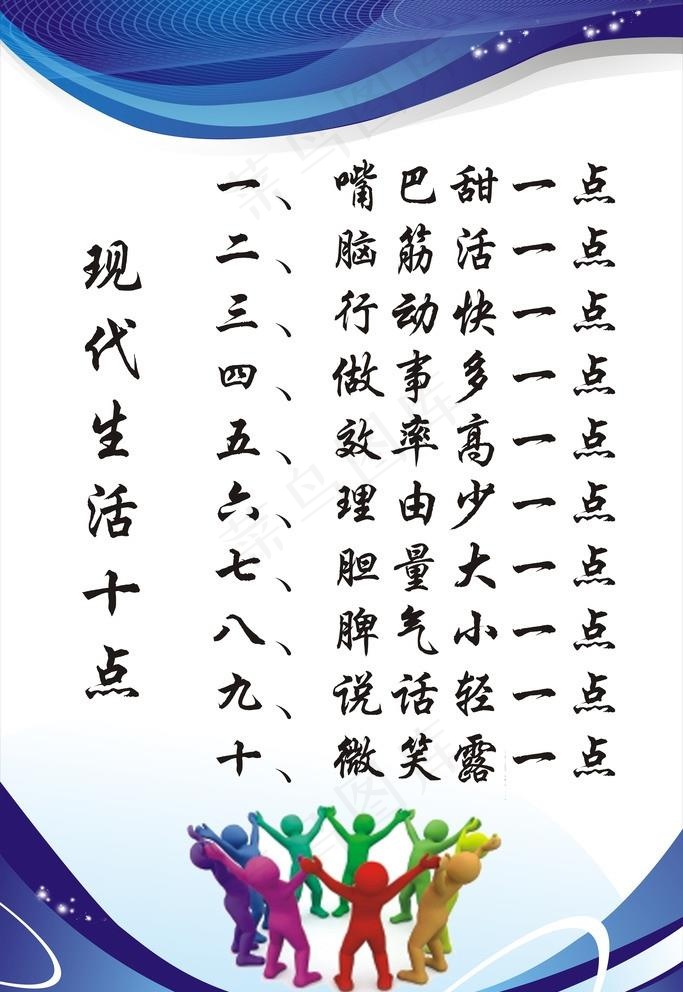 现代生活十点
一、嘴巴甜一点
二、脑筋活一点
三、行动快一点
四、做事多一点
五、效率高一点
六、理由少一点
七、胆量大一点
八、脾气小一点
九、说话轻一点
十、微笑露一点
菜鸟图库
菜鸟图库
菜鸟图库